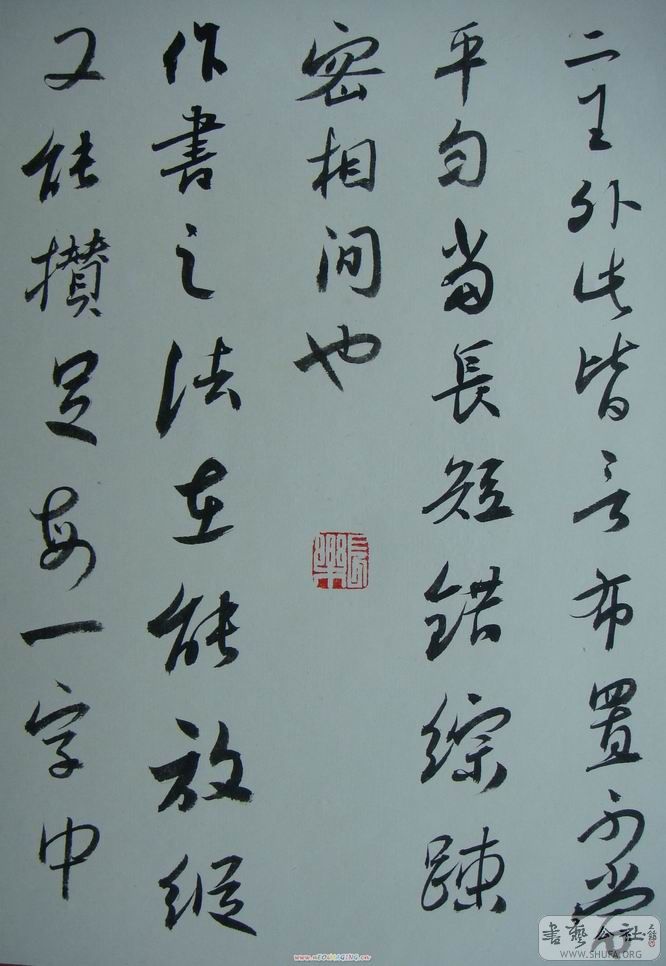 二王外此皆言布置不當
平勻當長短錯綜踈
密相間也
作書之法在能放縱
又能攢足每一字中
長樂
書藝公社
WWW.SHUFA.ORG